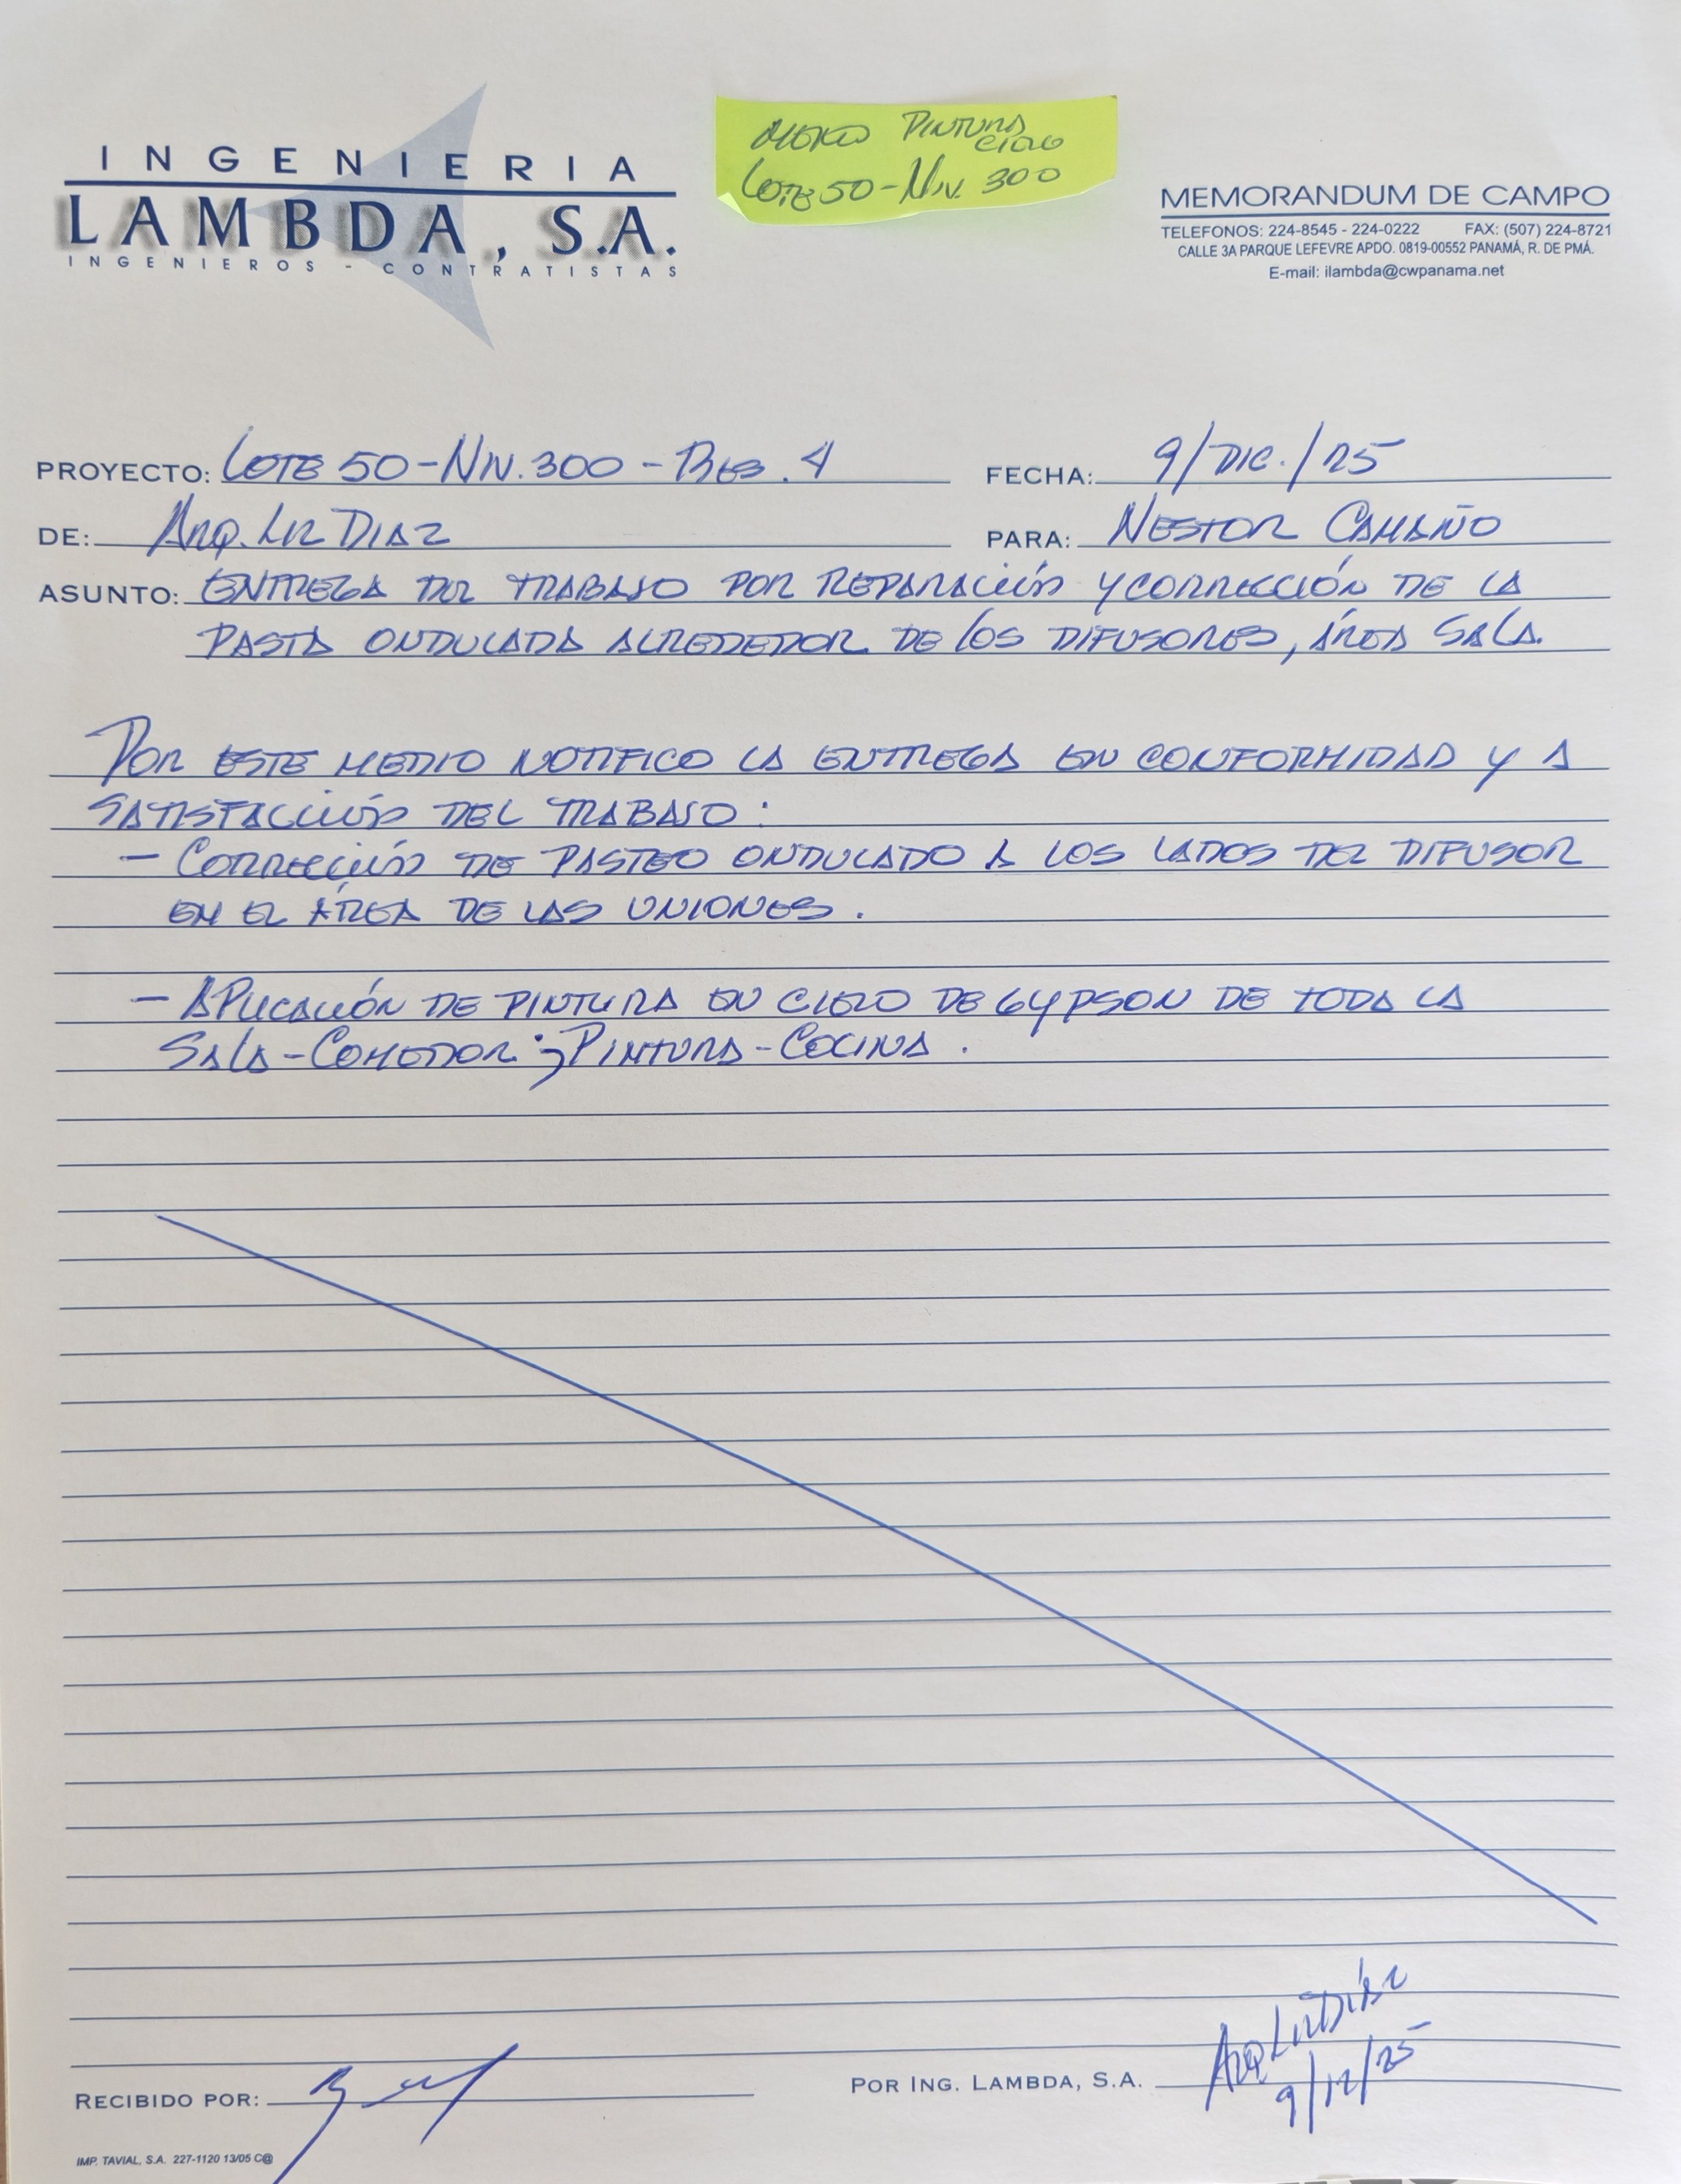 INGENIERIA
LAMBDA, S.A.
INGENIEROS - CONTRATISTAS
MEMO PINTURA
CIELO
LOTE 50-NIV. 300
MEMORANDUM DE CAMPO
TELEFONOS: 224-8545 - 224-0222 FAX: (507) 224-8721
CALLE 3A PARQUE LEFEVRE APDO. 0819-00552 PANAMÁ, R. DE PMÁ.
E-mail: ilambda@cwpanama.net
PROYECTO: LOTE 50-NIV. 300 - RES. 4 FECHA: 9/DIC./25
DE: ARQ. LIZ DIAZ PARA: NESTOR CAMAÑO
ASUNTO: ENTREGA DEL TRABAJO POR REPARACIÓN Y CORRECCIÓN DE LA
PASTA ONDULADA ALREDEDOR DE LOS DIFUSORES, ÁREA SALA.
POR ESTE MEDIO NOTIFICO LA ENTREGA EN CONFORMIDAD Y A
SATISFACCIÓN DEL TRABAJO:
- CORRECCIÓN DE PASTEO ONDULADO A LOS LADOS DEL DIFUSOR
EN EL ÁREA DE LAS UNIONES.
- APLICACIÓN DE PINTURA EN CIELO DE GYPSON DE TODA LA
SALA-COMEDOR; PINTURA-COCINA.
RECIBIDO POR:
POR ING. LAMBDA, S.A. ARQ LIZ DÍAZ
9/12/25
IMP. TAVIAL, S.A. 227-1120 13/05 C@